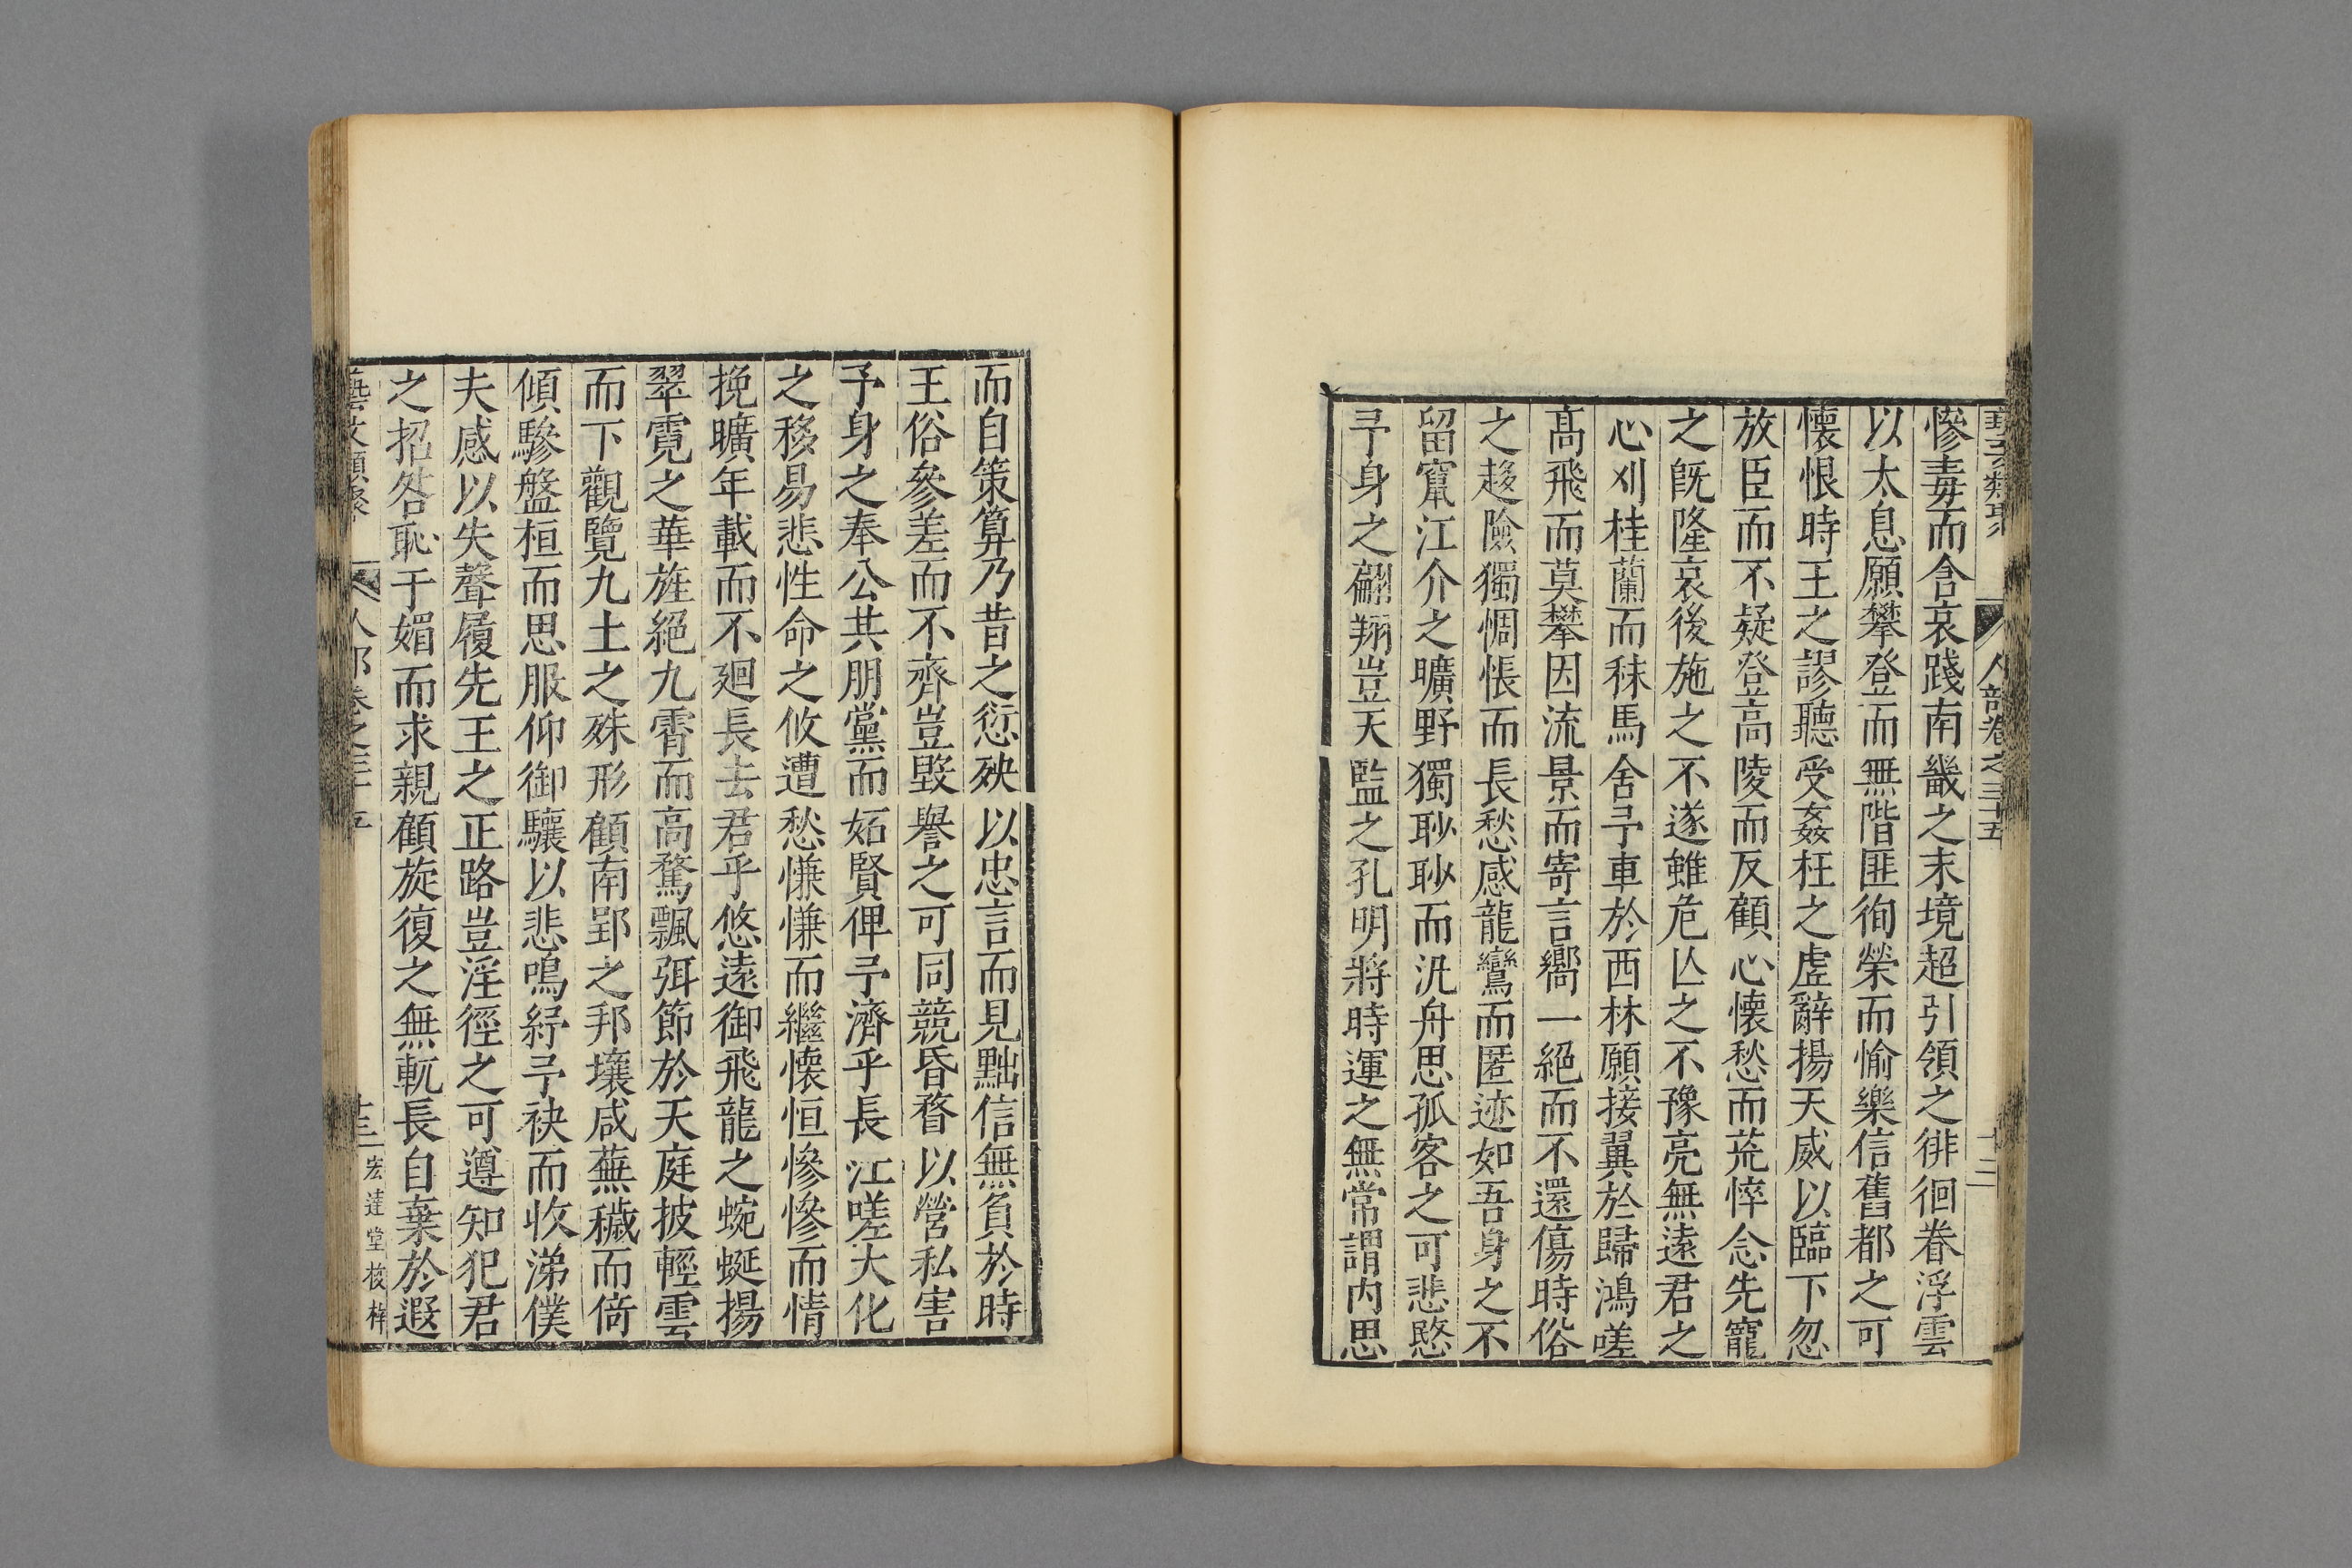 藝文類聚 人部卷之三十五 十二
慘毒而含哀踐南畿之末境超引領之徘徊眷浮雲
以太息願攀登而無階匪徇榮而愉樂信舊都之可
懷恨時王之謬聽受姦枉之虛辭揚天威以臨下忽
放臣而不疑登高陵而反顧心懷愁而荒悴念先寵
之旣隆哀後施之不遂雖危亾之不豫亮無遠君之
心刈桂蘭而秣馬舍予車於西林願接翼於歸鴻嗟
高飛而莫攀因流景而寄言嚮一絕而不還傷時俗
之趍險獨惆悵而長愁感龍鸞而匿迹如吾身之不
留竄江介之曠野獨眇眇而汎舟思孤客之可悲愍
予身之翩翔豈天監之孔明將時運之無常謂内思
而自策算乃昔之愆殃以忠言而見黜信無負於時
王俗參差而不齊豈毀譽之可同競昏瞀以營私害
予身之奉公共朋黨而妬賢俾予濟乎長江嗟大化
之移易悲性命之攸遭愁慊慊而繼懷恒慘慘而情
挽曠年載而不廻長去君乎悠遠御飛龍之蜿蜒揚
翠霓之華旌絕九霄而高騖飄弭節於天庭披輕雲
而下觀覽九土之殊形顧南郢之邦壤咸蕪穢而倚
傾驂盤桓而思服仰御驤以悲鳴紓予袂而收涕僕
夫感以失聲履先王之正路豈淫徑之可遵知犯君
之招咎恥于媚而求親顧旋復之無軏長自棄於遐
藝文類聚 人部卷之三十五 十三 宏達堂校梓